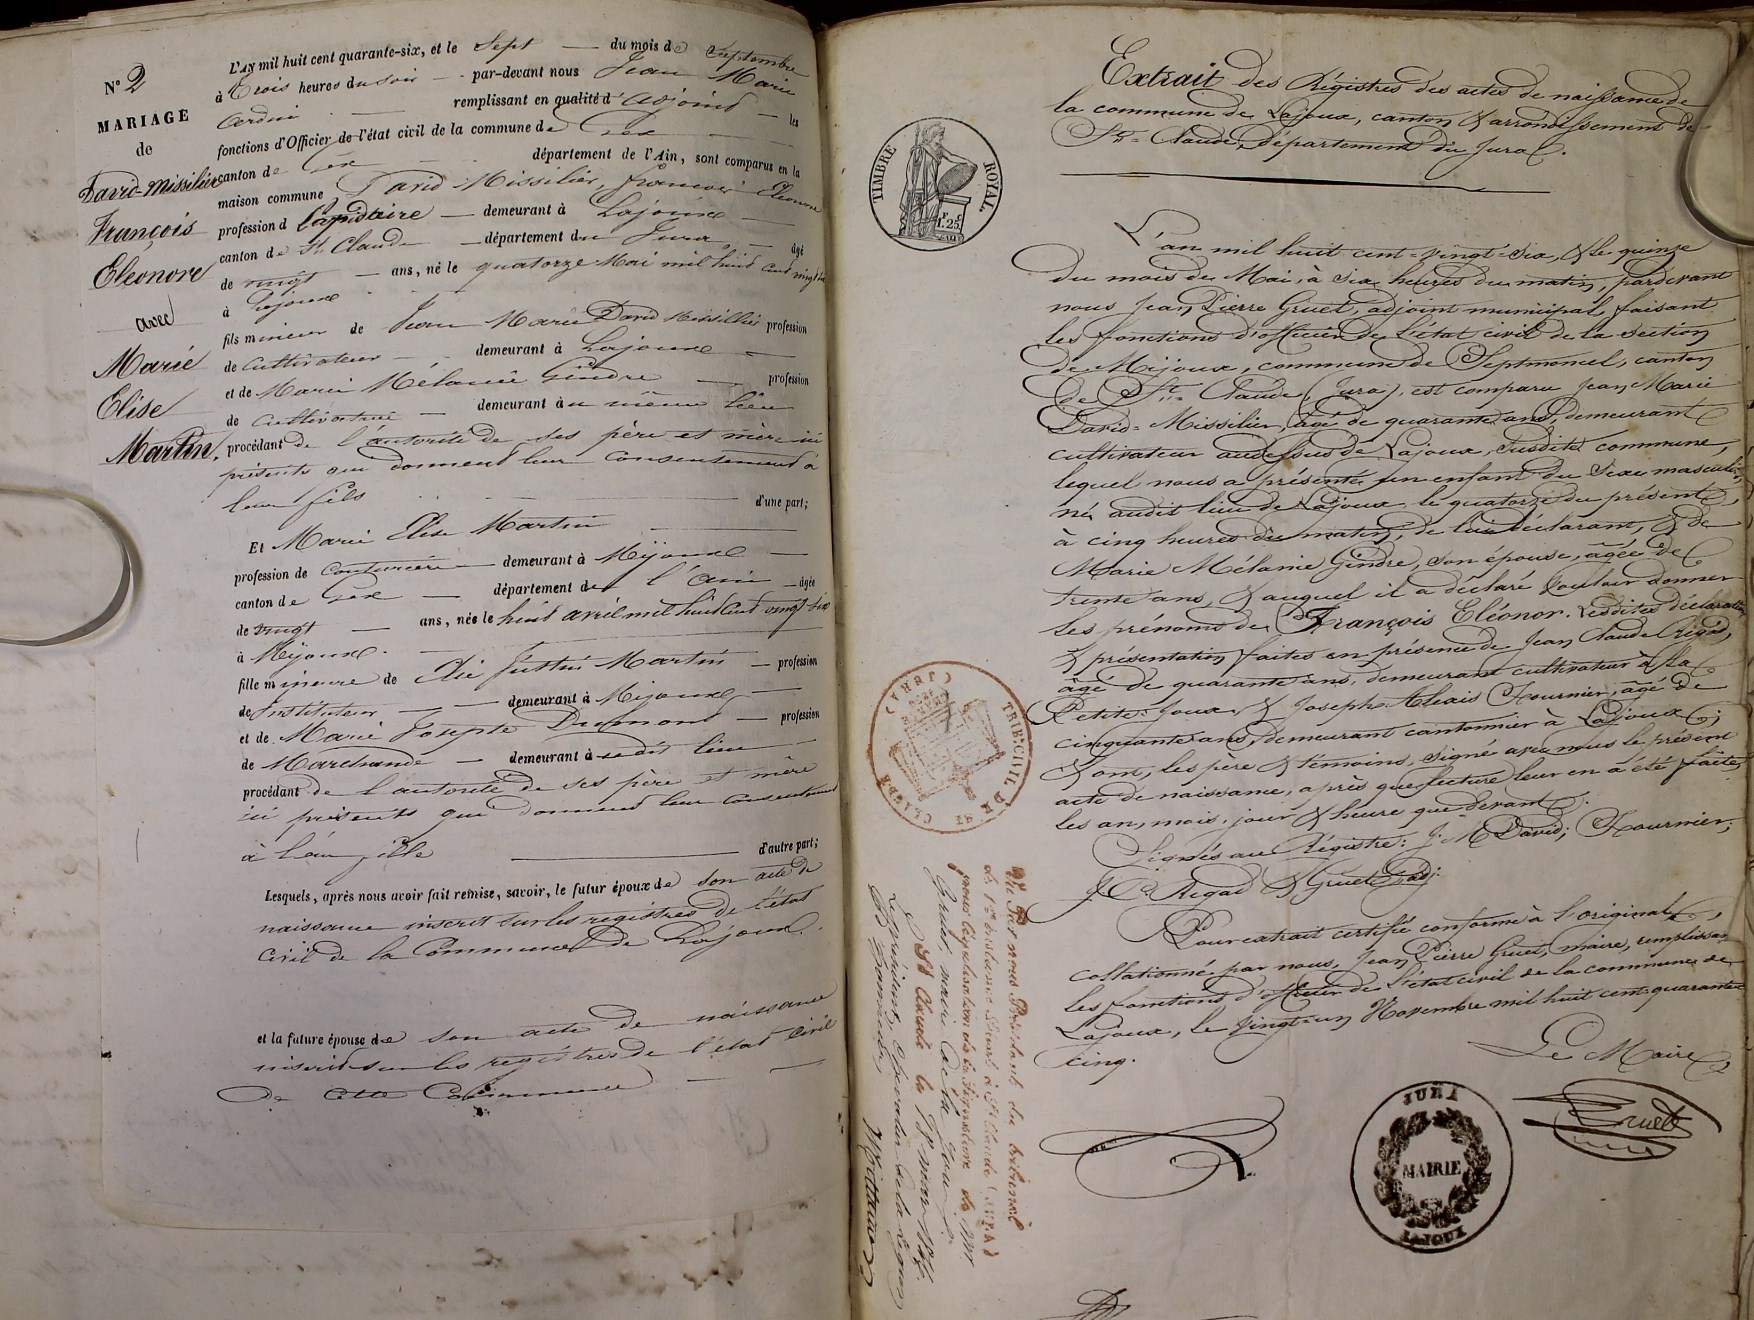 N° 2
MARIAGE
de
David-Missilier
François
Eléonore
avec
Marie
Elise
Martin.
L'AN mil huit cent quarante-six, et le Sept du mois de Septembre
à Trois heures du soir par-devant nous Jean Marie
remplissant en qualité d'adjoint les
fonctions d'Officier de l'état civil de la commune de Gex
canton de Gex département de l'Ain, sont comparus en la
maison commune David Missilier, françois Eléonore
profession de Lapidaire demeurant à Lajoux
canton de St. Claude département du Jura âgé
de vingt ans, né le quatorze Mai mil huit cent vingt six
à Lajoux
fils mineur de Jean Marie David Missillier profession
de Cultivateur demeurant à Lajoux
et de Marie Mélanie Gindre profession
de Cultivatrice demeurant au même lieu
procédant de l'autorité de ses père et mère ici
présents qui donnent leur consentement à
leur fils d'une part;
Et Marie Elise Martin
profession de Couturière demeurant à Mijoux
canton de Gex département de l'ain âgée
de vingt ans, née le huit avril mil huit cent vingt six
à Mijoux.
fille mineure de Elie Justin Martin profession
de Instituteur demeurant à Mijoux
et de Marie Josepte Dumont profession
de Marchande demeurant à sedit lieu
procédant de l'autorité de ses père et mère
ici présents qui donnent leur consentement
à leur fille d'autre part;
Lesquels, après nous avoir fait remise, savoir, le futur époux de son acte de
naissance inscrit sur les registres de l'état
civil de la Commune de Lajoux.
et la future épouse de son acte de naissance
inscrit sur les registres de l'état civil
de cette Commune
Extrait des Régistres des actes de naissance de
la commune de Lajoux, canton & arrondissement de
St. Claude, Département du Jura.
TIMBRE ROYAL.
F. C.
1.25.
L'an mil huit cent-vingt-six, & le quinze
du mois de Mai, à six heures du matin, pardevant
nous Jean Pierre Gruet, adjoint municipal faisant
les fonctions d'officier de l'état civil de la section
de Mijoux, commune de Septmoncel, canton
de St. Claude (Jura), est comparu Jean Marie
David-Missilier, âgé de quarante ans, demeurant
cultivateur audessus de Lajoux, susdite commune,
lequel nous a présenté un enfant du sexe masculin,
né audit lieu de Lajoux le quatorze du présent,
à cinq heures du matin, de lui déclarant, & de
Marie Mélanie Gindre, son épouse, âgée de
trente ans, & auquel il a déclaré vouloir donner
les prénoms de François Eléonor. Lesdites déclaration
& présentation faites en présence de Jean Claude Régad,
âgé de quarante ans, demeurant cultivateur à la
Petite-Joux, & Joseph Alexis Fournier, âgé de
cinquante ans, demeurant cantonnier à Lajoux;
& ont, les père & témoins, signé avec nous le présent
acte de naissance, après que lecture leur en a été faite,
les an, mois, jour & heure que devant.
Signés au Régistre: J. M. David; Fournier;
J. C. Régad & Gruet, adj.
Pour extrait certifié conforme à l'original,
collationné par nous, Jean Pierre Gruet, maire, remplissant
les fonctions d'officier de l'état civil de la commune de
Lajoux, le vingt-un Novembre mil huit cent quarante
cinq.
Le Maire
Gruet
JURA
MAIRIE
LAJOUX
TRIB. CIVIL DE ST CLAUDE (JURA)
Vu Par nous Président du tribunal
de 1re instance séant à St Claude (JURA)
pour légalisation de la signature de Mr
Gruet maire de la Joux
St Claude le